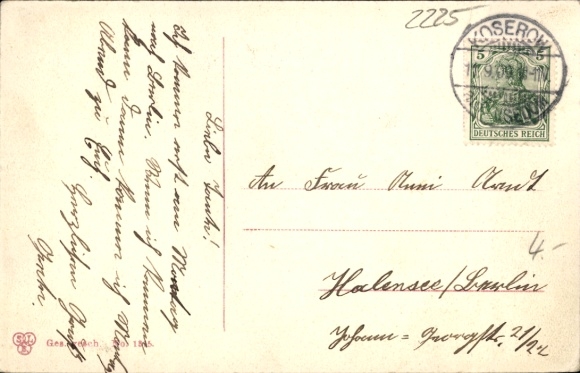 2225
KOSEROW
5 5
DEUTSCHES REICH
Liebe Tante!
Ich komme erst am Montag
nach Berlin. Wenn ich kommen
kann dann komme ich Montag
Abend zu Euch.
Herzlichen Gruß
An Frau Anni Arndt
4.-
Halensee/Berlin
Johann=Georgstr. 21/22
Ges. gesch. No. 1545.